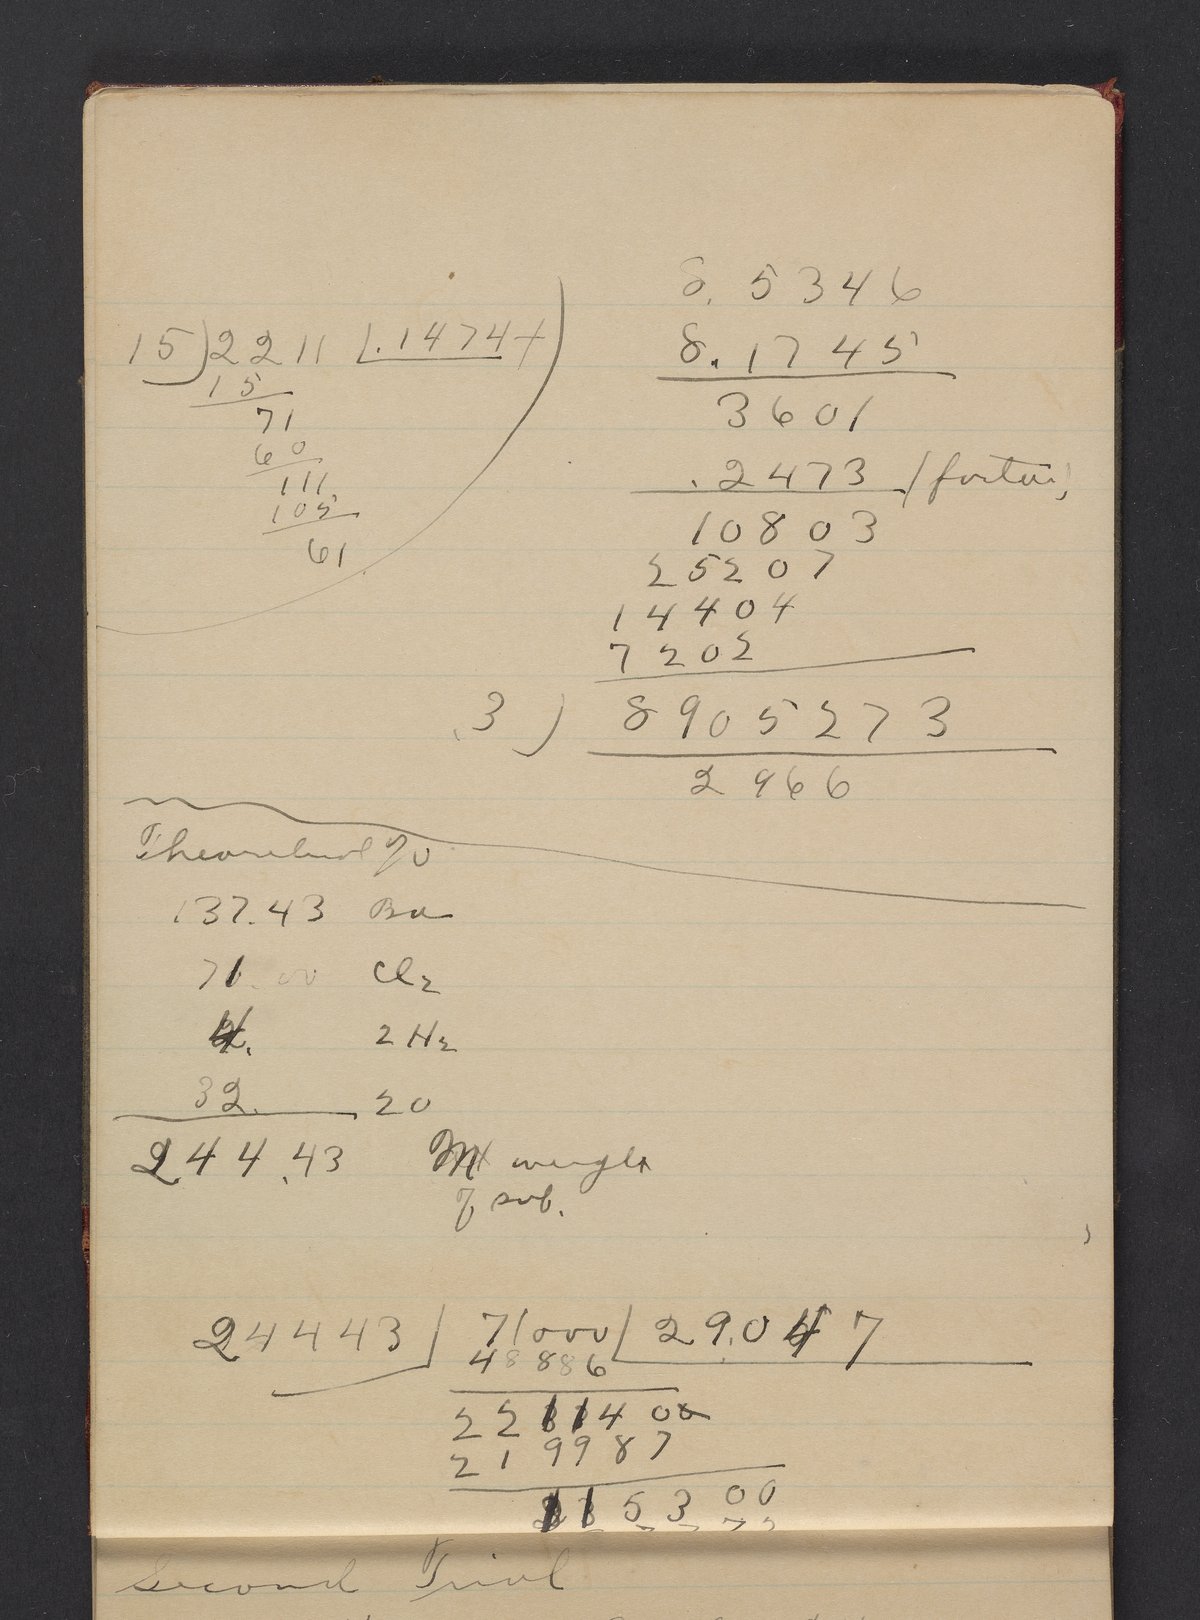 15)2211 |.1474+
15
71
60
111
105
61
8.5346
8.1745
3601
.2473 (factor)
10803
25207
14404
7202
.3) 8905273
2966
Theoretical %
137.43 Ba
71.00 Cl2
4. 2H2
32. 2O
244.43 M weight
of sub.
24443) 71000 |29.047
48886
2211400
219987
115300
Second Trial